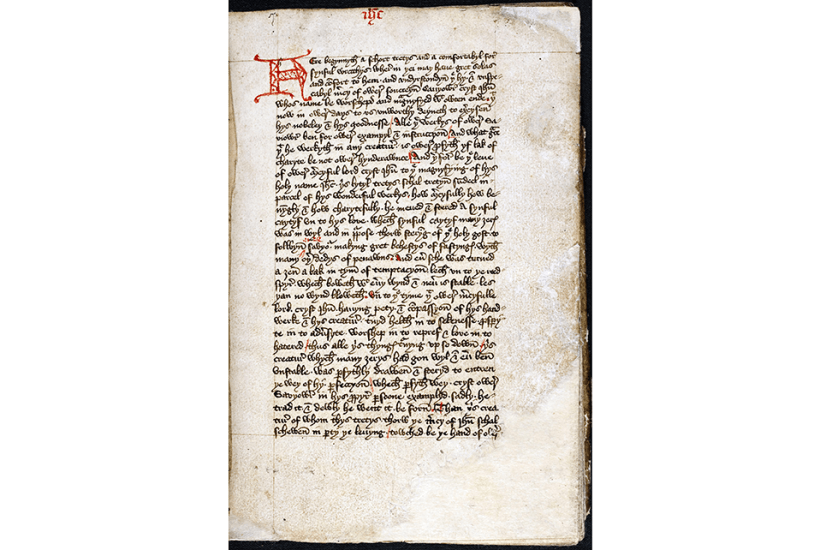 ihc
Here begynnyth a schort tretys and a comfortabyl for
synful wrecchys. wher in þei may haue gret solas
and cõfort to hem. and vndyrstondyn þe hy & vnspe
cabyl mcy of ower souereyn Sauyowr cryst ihũ
whos name be worschepd and magnyfyed wtowten ende. þt
now in ower days to vs vnworthy deyneth to exersysen
hys nobeley & hys goodnesse. Alle þe werkys of ower Sa
uiowr ben for ower exampyl & instruccyon. and what grce
þt he werkyth in any creatur. is ower profyth yf lak of
charyte be not ower hynderawnce. And þerfor be þe leue
of ower mcyful lord cryst ihũ to þe magnyfying of hys
holy name ihc. þis lytyl tretys schal tretyn sumdeel in
parcel of hys wonderful werkys. how mcyfully. how be
nyngly & how charytefully. he meued & stered a synful
caytyf vn to hys loue. whech synful caytyf many ȝerys
was in wyl and in ppose thorw steryng of þe holy gost to
folwyn sauyor. makyng gret behestys of fastyngs wyth
many oþer dedys of penawns. And eur sche was turned
a ȝen a bak in tym of temptacyon. lech vn to þe red
spyr. whech boweth wt eury wynd & neur is stable. les
þan no wynd bloweth. vn to þe tyme þt ower mcyfulle
lord. cryst ihũ hauyng pety & cõpassyon of hys hand
werke & hys creatur. turnyd helth in to sekenesse. pspy
te in to aduersyte. worshep in to repref & loue in to
hatered. thus alle þis thyngys turnyng vp so down. þis
creatur whych many ȝerys had gon wyl & eur ben
vnstable. was pfythly drawen & steryd to entren
þe wey of hy pfeccyon. whech pfyth wey. cryst ower
Savyowr in hys ppyr psone examplyd. sadly. he
trad it & dewly he went it be forn. Than þis crea
tur of whom thys tretys thorw þe mcy of ihũ schal
schewen in pty þe leuyng. towched be þe hand of owyr